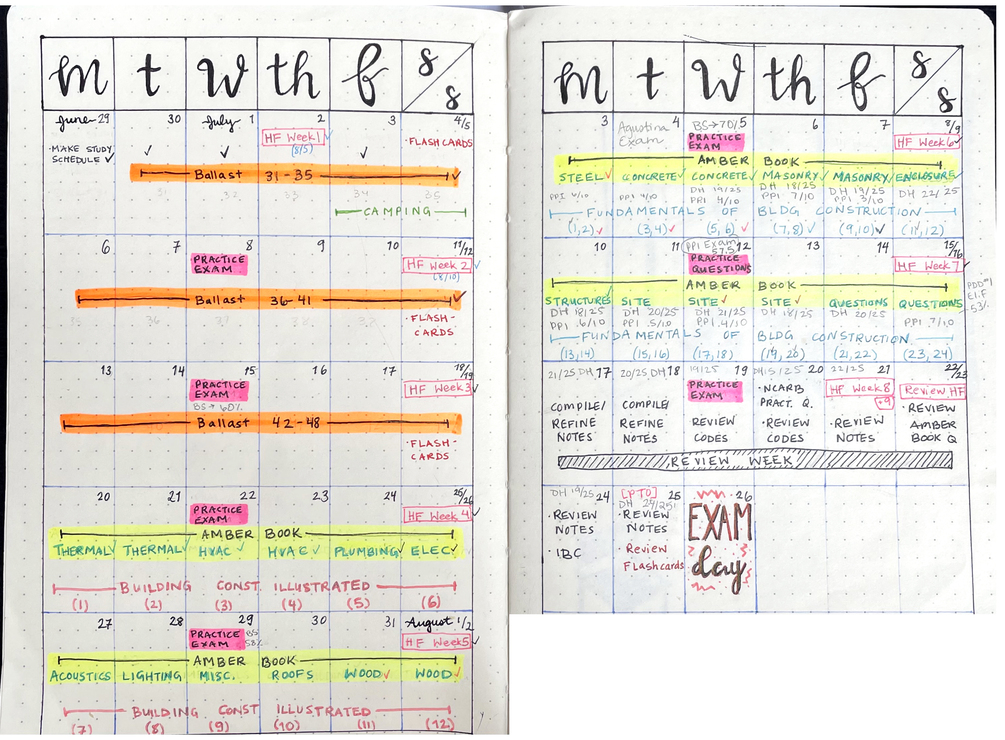 m t W th f s/s
June 29 30 July 1 2 3 4/5
·MAKE STUDY SCHEDULE ✓ ✓ ✓ HF Week 1 ✓ ·FLASH CARDS
(8/5)
Ballast 31-35 ✓
31 32 33 34 35
CAMPING
6 7 8 9 10 11/12
PRACTICE EXAM HF Week 2 ✓
(8/10)
Ballast 36-41 ✓
·FLASH-CARDS
13 14 15 16 17 18/19
PRACTICE EXAM HF Week 3 ✓
BS → 60%
Ballast 42-48
·FLASH-CARDS
20 21 22 23 24 25/26
PRACTICE EXAM HF Week 4 ✓
AMBER BOOK
THERMAL ✓ THERMAL ✓ HVAC ✓ HVAC ✓ PLUMBING ✓ ELEC ✓
BUILDING CONST ILLUSTRATED
(1) (2) (3) (4) (5) (6)
27 28 29 30 31 August 1/2
PRACTICE EXAM BS 58% HF Week 5 ✓
AMBER BOOK
ACOUSTICS LIGHTING MISC. ROOFS WOOD ✓ WOOD ✓
BUILDING CONST ILLUSTRATED
(7) (8) (9) (10) (11) (12)
m t W th f s/s
3 4 5 6 7 8/9
Agustina Exam BS → 70% PRACTICE EXAM HF Week 6 ✓
AMBER BOOK
STEEL ✓ CONCRETE ✓ CONCRETE ✓ MASONRY ✓ MASONRY ✓ ENCLOSURE
DH 19/25 DH 18/25 DH 19/25 DH 22/25
PPI 4/10 PPI 4/10 PPI 7/10
FUNDAMENTALS OF BLDG CONSTRUCTION
(1,2) ✓ (3,4) ✓ (5,6) ✓ (7,8) ✓ (9,10) ✓ (11,12)
10 11 12 13 14 15/16
PPI Exam 57.5% PRACTICE QUESTIONS HF Week 7
AMBER BOOK
STRUCTURES SITE SITE ✓ SITE ✓ QUESTIONS QUESTIONS
DH 18/25 DH 20/25 DH 21/25 DH 18/25 DH 20/25
PPI .6/10 PPI .5/10 PPI .4/10 PPI .7/10
PDD #1
53%
FUNDAMENTALS OF BLDG CONSTRUCTION
(13,14) (15,16) (17,18) (19,20) (21,22) (23,24)
21/25 DH 17 20/25 DH 18 19/25 19 DH 15/25 20 22/25 21 22/23
COMPILE/ REFINE NOTES
COMPILE/ REFINE NOTES
PRACTICE EXAM
REVIEW CODES
·NCARB PRACT. Q.
·REVIEW CODES
HF Week 8 +9
·REVIEW NOTES
Review HF
·REVIEW AMBER BOOK Q
REVIEW WEEK
DH 19/25 24 [PTO] 25 26
DH 24/25
·REVIEW NOTES
·IBC
·REVIEW NOTES
·Review Flashcards
EXAM
day